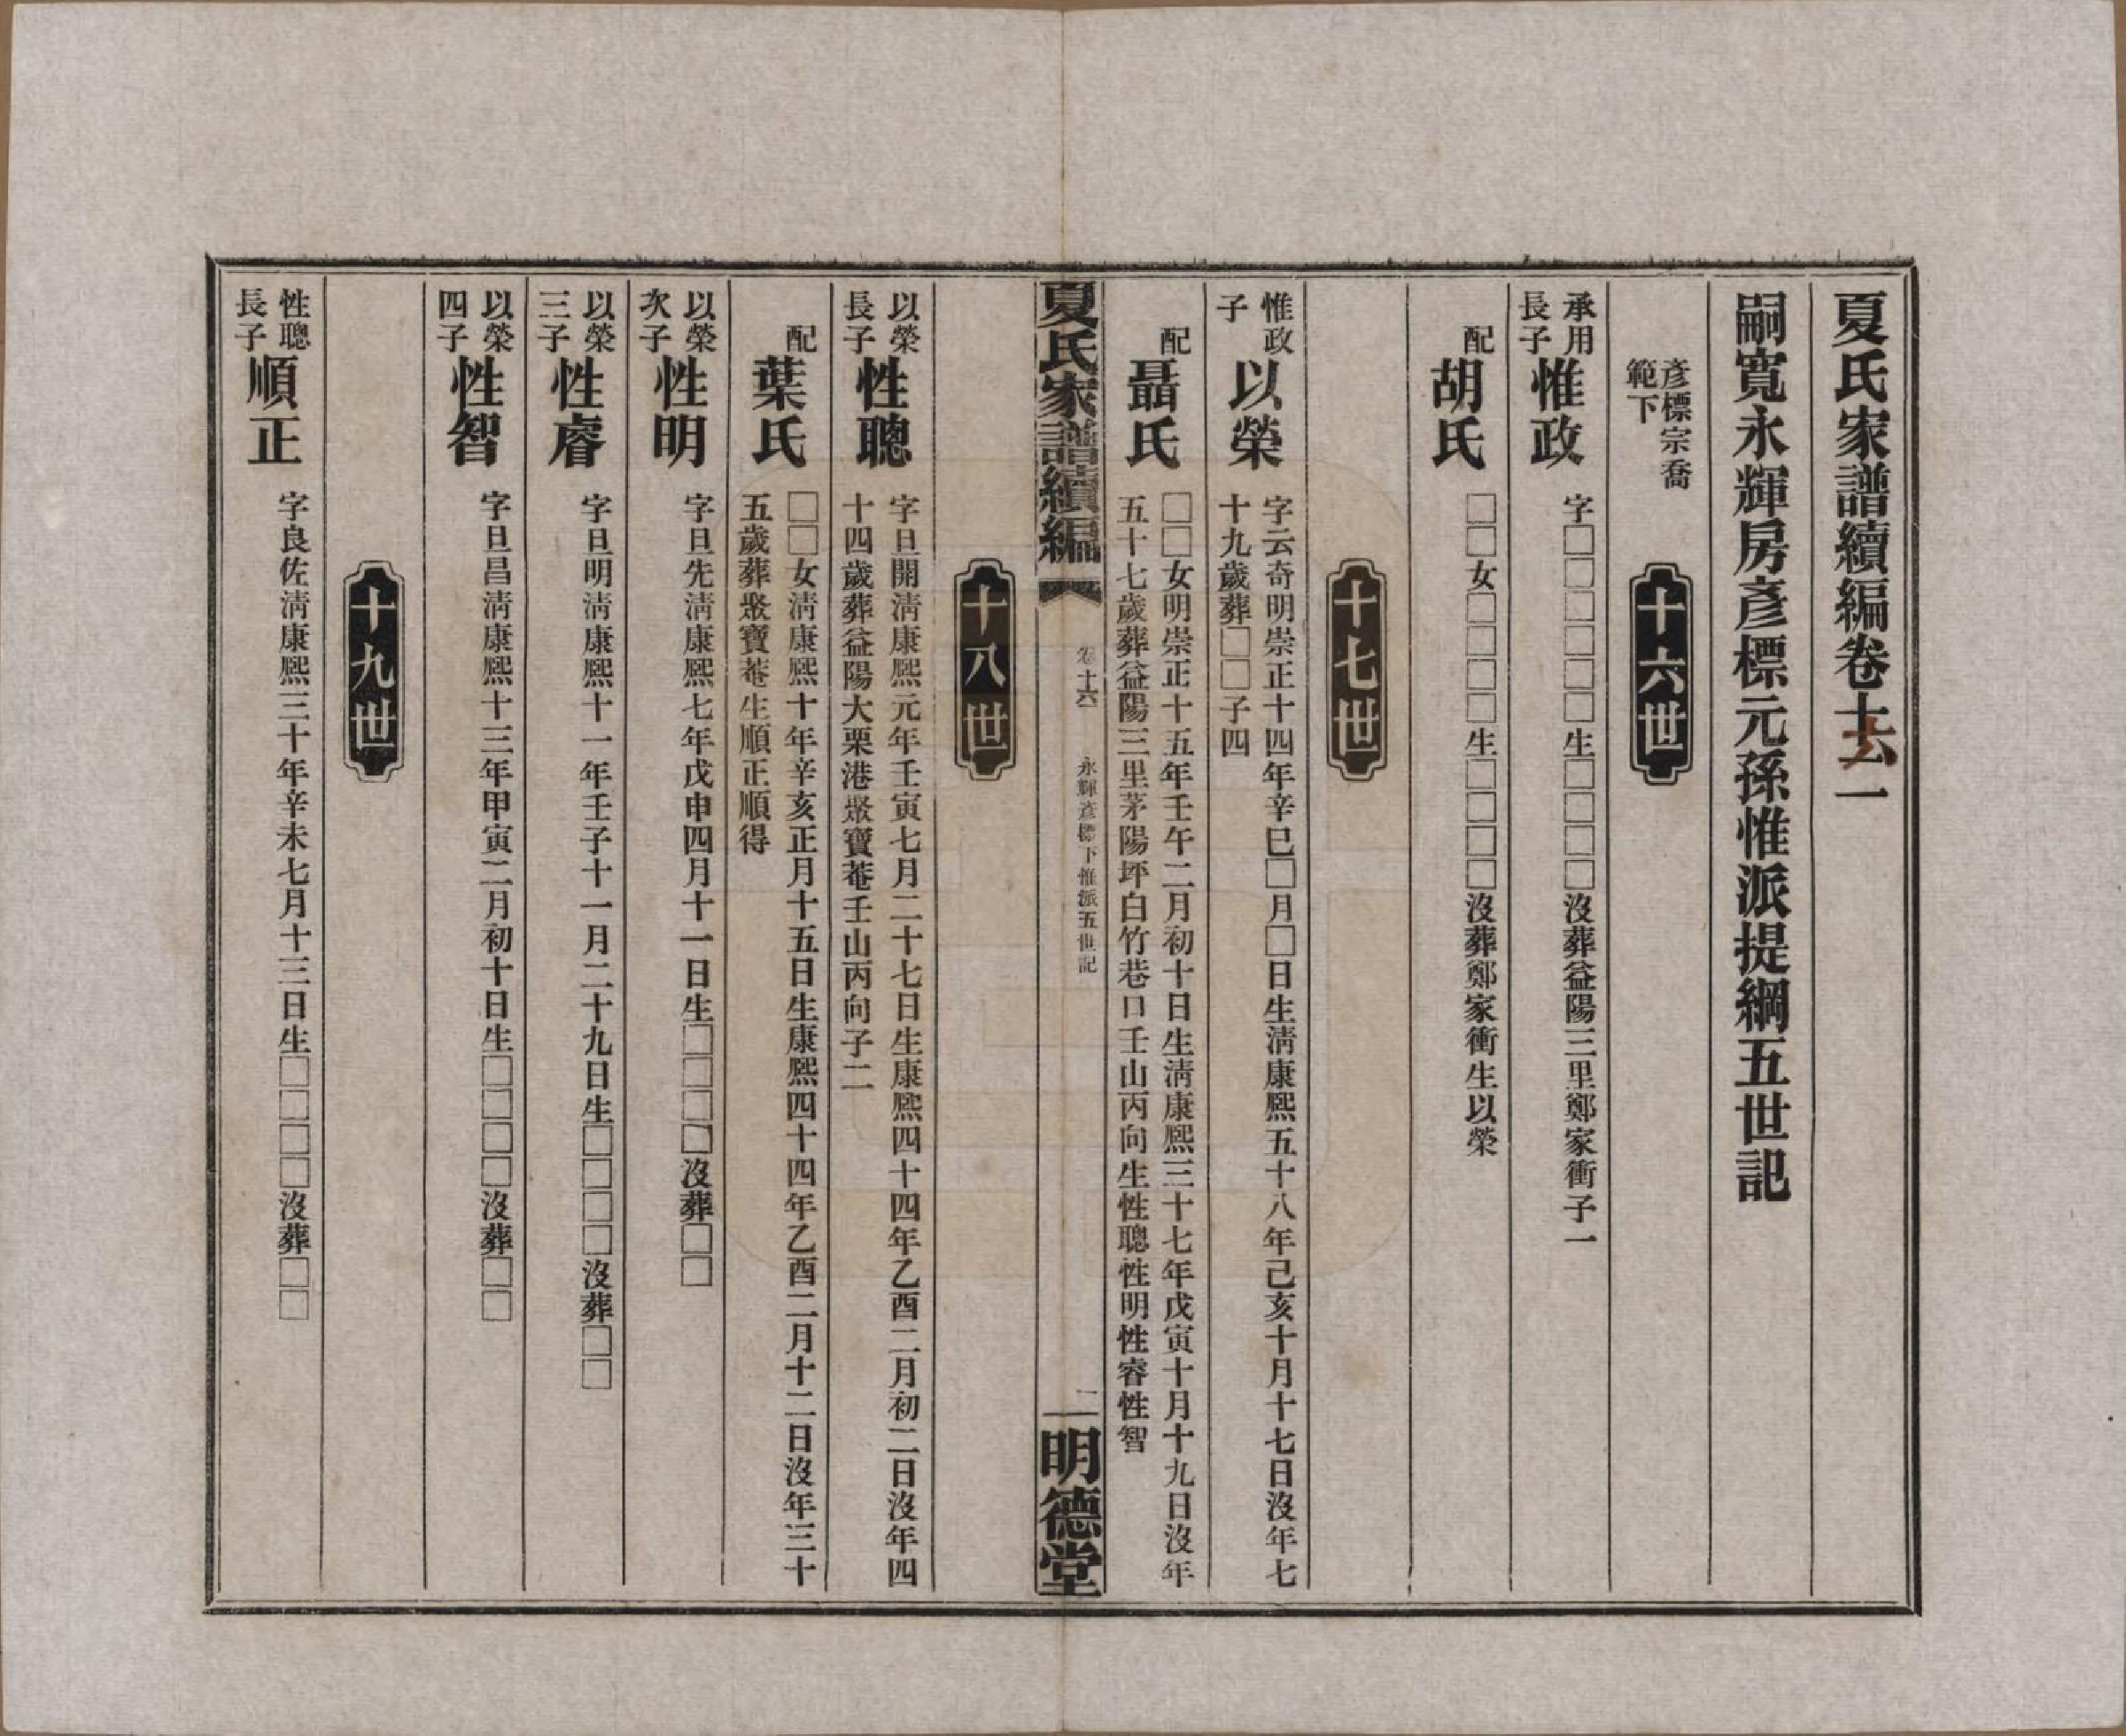 夏氏家譜續編卷十六一
嗣寬永輝房彥標元孫惟派提綱五世記
彥標宗喬
範下
十六世
承用
長子
惟政
字□□□□□□生□□□□沒葬益陽三里鄭家衝子一
配
胡氏
□□女□□□□生□□□□沒葬鄭家衝生以榮
十七世
惟政
子
以榮
字云奇明崇正十四年辛巳□月□日生清康熙五十八年己亥十月十七日沒年七
十九歲葬□□子四
配
聶氏
□□女明崇正十五年壬午二月初十日生清康熙三十七年戊寅十月十九日沒年
五十七歲葬益陽三里茅陽坪白竹巷口壬山丙向生性聰性明性睿性智
夏氏家譜續編
卷十六
永輝彥標下惟派五世記
二
明德堂
十八世
以榮
長子
性聰
字旦開清康熙元年壬寅七月二十七日生康熙四十四年乙酉二月初二日沒年四
十四歲葬益陽大栗港聚寶菴壬山丙向子二
配
葉氏
□□女清康熙十年辛亥正月十五日生康熙四十四年乙酉二月十二日沒年三十
五歲葬聚寶菴生順正順得
以榮
次子
性明
字旦先清康熙七年戊申四月十一日生□□□□沒葬□□
以榮
三子
性睿
字旦明清康熙十一年壬子十一月二十九日生□□□□沒葬□□
以榮
四子
性智
字旦昌清康熙十三年甲寅二月初十日生□□□□沒葬□□
十九世
性聰
長子
順正
字良佐清康熙三十年辛未七月十三日生□□□□沒葬□□